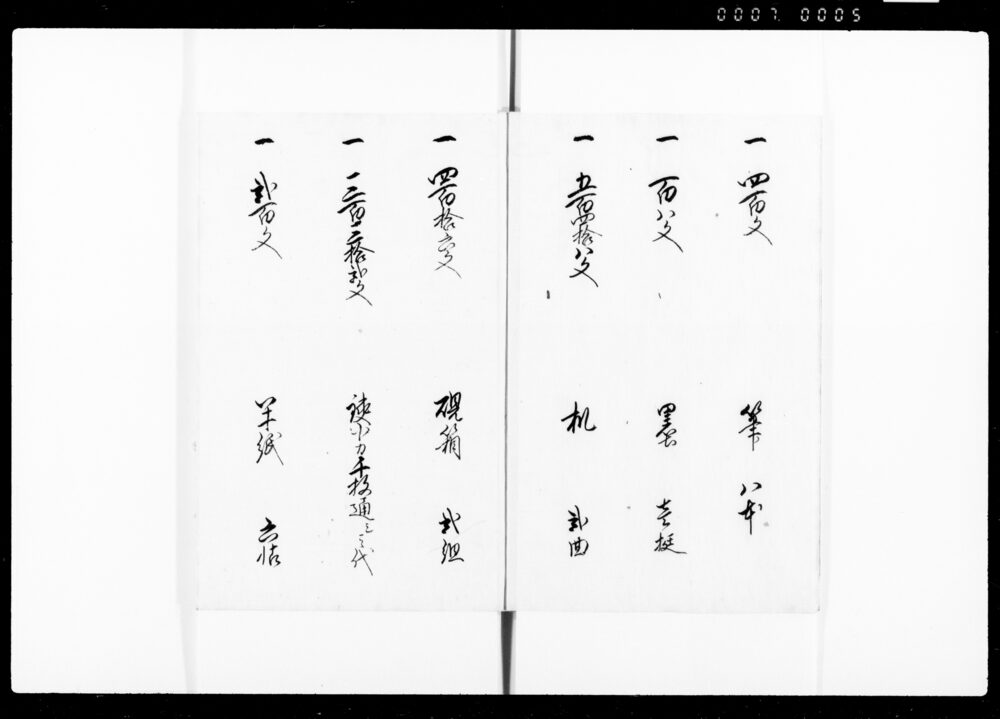 0007 0005
一 四百文 筆 八本
一 百八文 墨 壱挺
一 五百四拾八文 机 弐曲
一 四百拾六文 硯箱 弐組
一 三百三拾弐文
一 弐百文 半紙 六帖